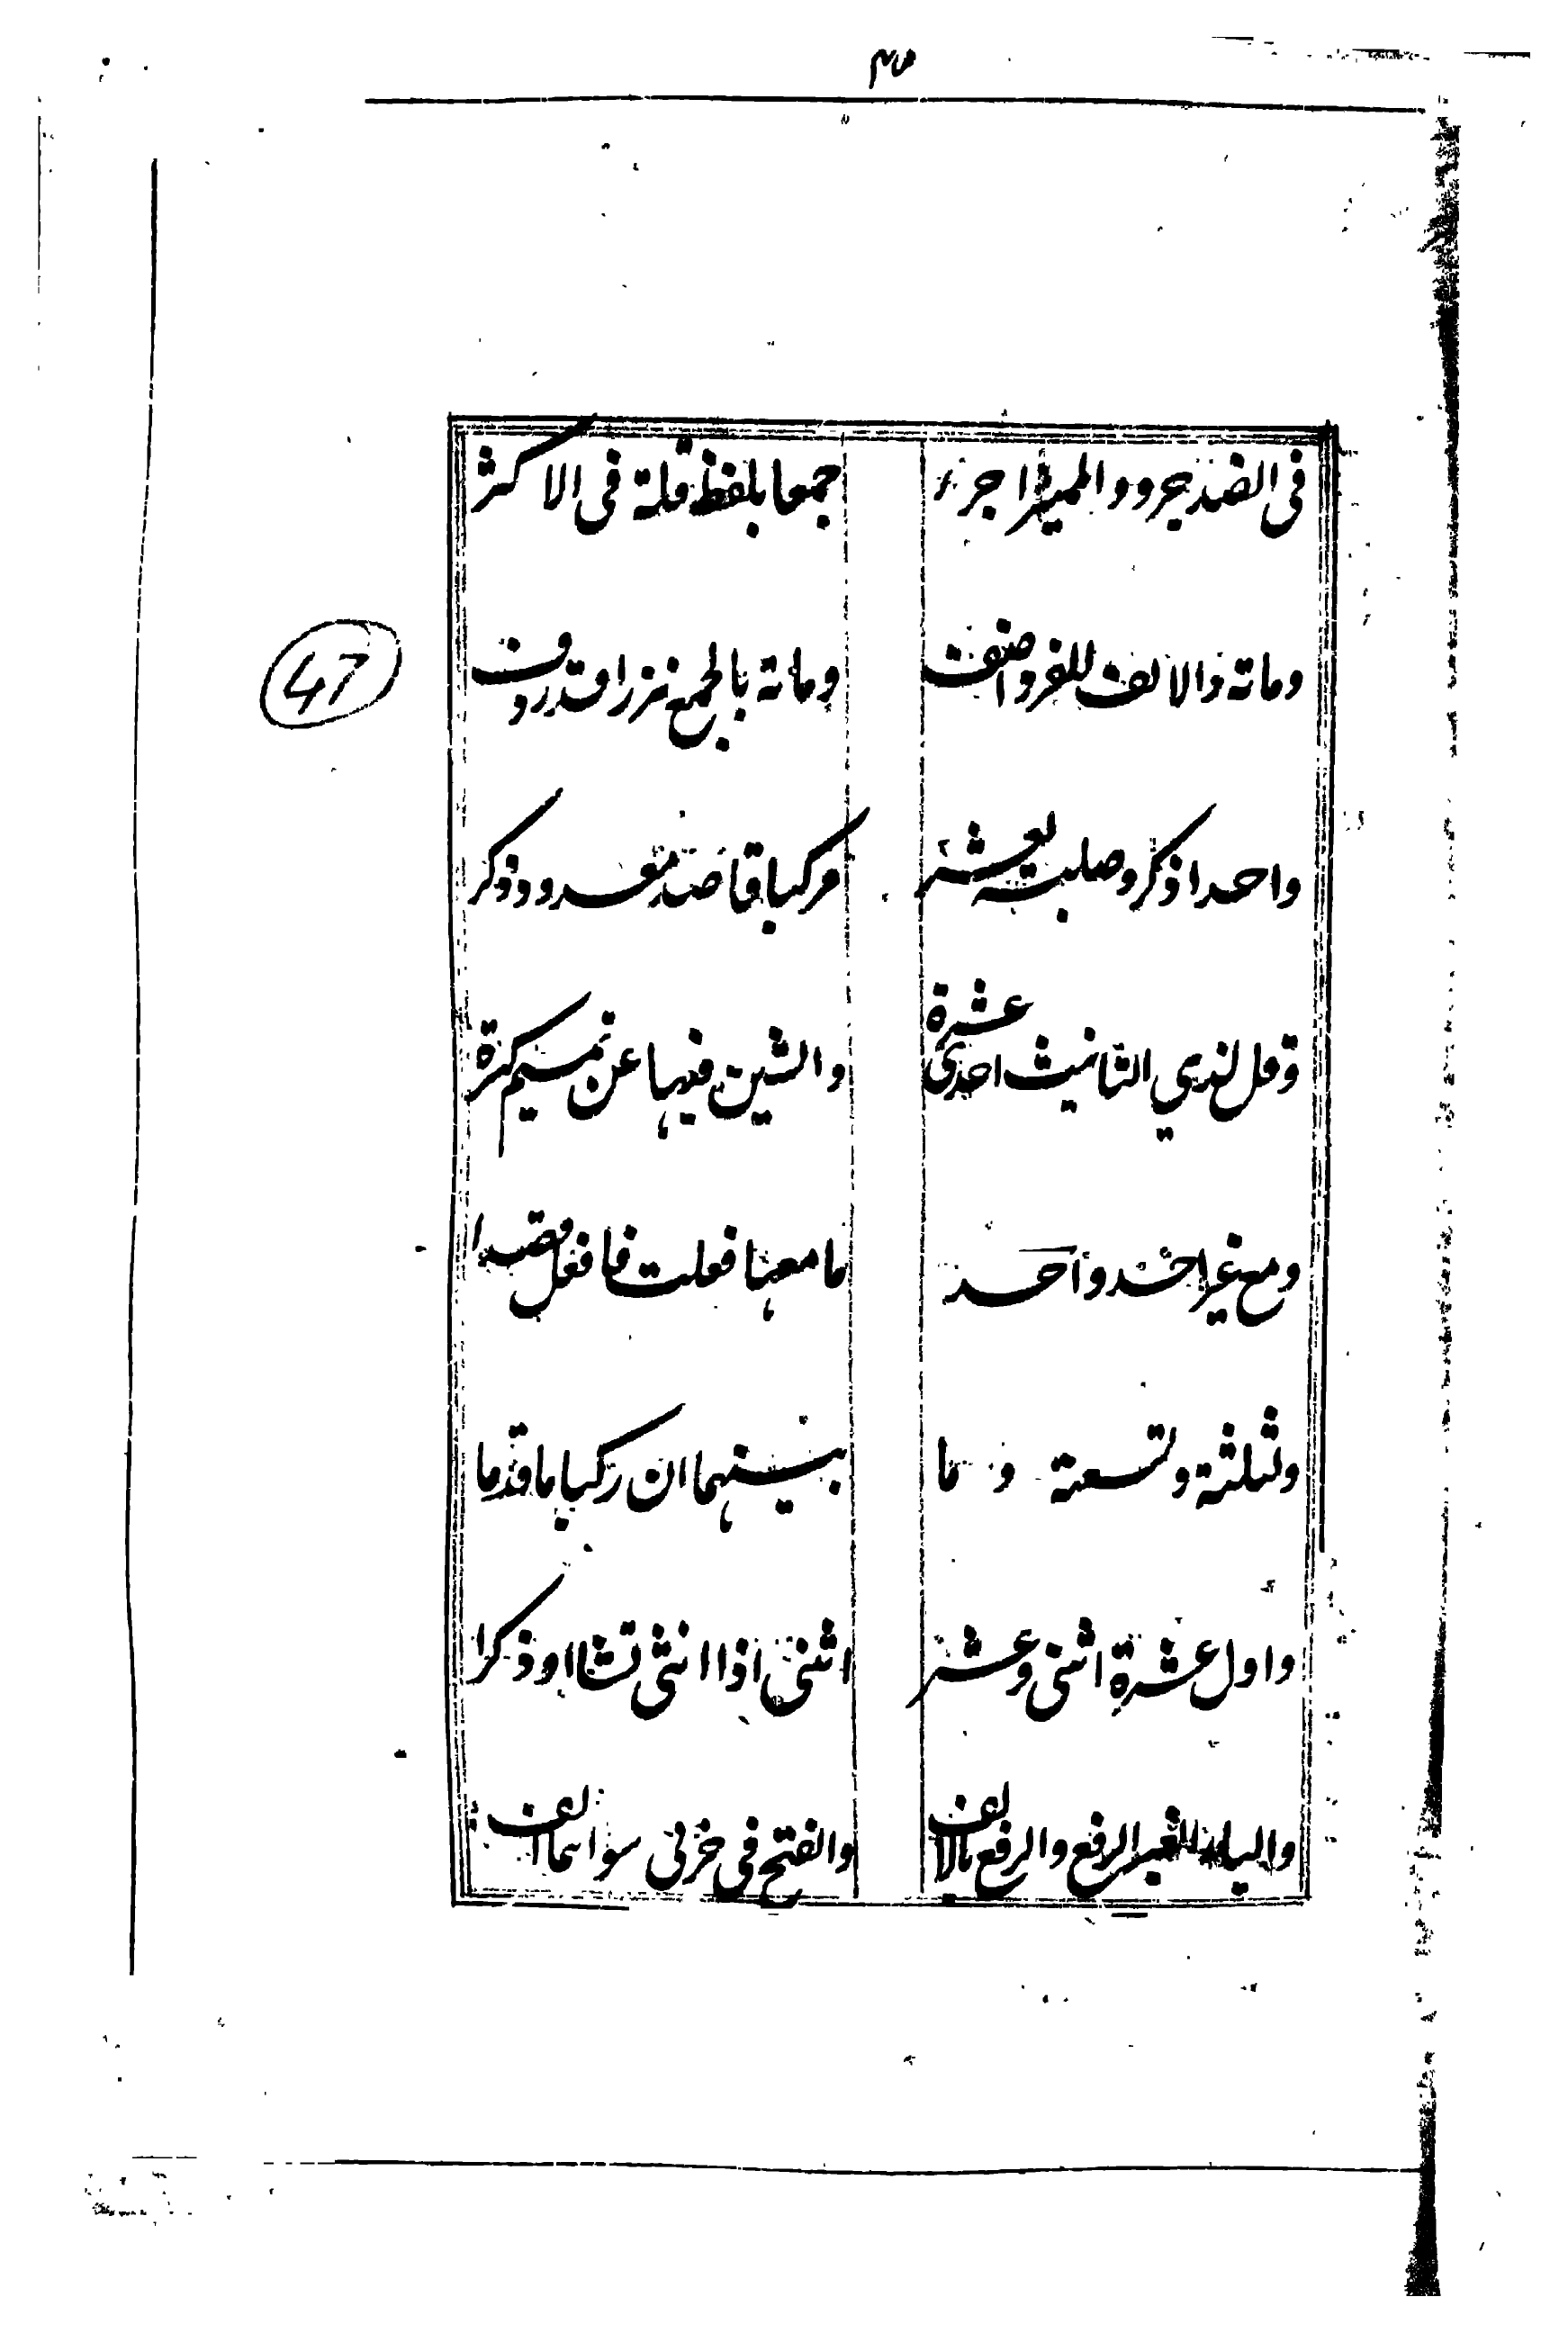 في الضد جرد والمميز اجرر جمعا بلفظ قلة في الاكثر
ومائة والالف للفرد اضف ومائة بالجمع نزرا قد ردف
واحد اذكر وصلنه بعشر مركبا قاصد معدود ذكر
وقل لدي التانيث احدى عشرة والشين فيها عن تميم كسرة
ومع غير احد واحدى ما معهما فعلت فافعل قصدا
ولثلثة وتسعة وما بينهما ان ركبا ما قدما
واول عشرة اثنتي وعشر اثني اذا انثى تشا او ذكرا
واليا لغير الرفع والرفع بالالف والفتح في جزئي سواهما الف
47